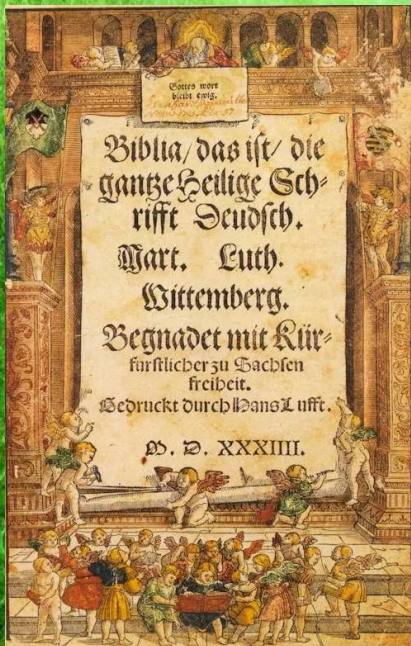 Gottes wort
bleibt ewig.
Biblia/ das ist/ die
gantze Heilige Sch-
rifft Deudsch.
Mart. Luth.
Wittemberg.
Begnadet mit Kür-
fürstlicher zu Sachsen
freiheit.
Gedruckt durch Hans Lufft.
M. D. XXXIIII.